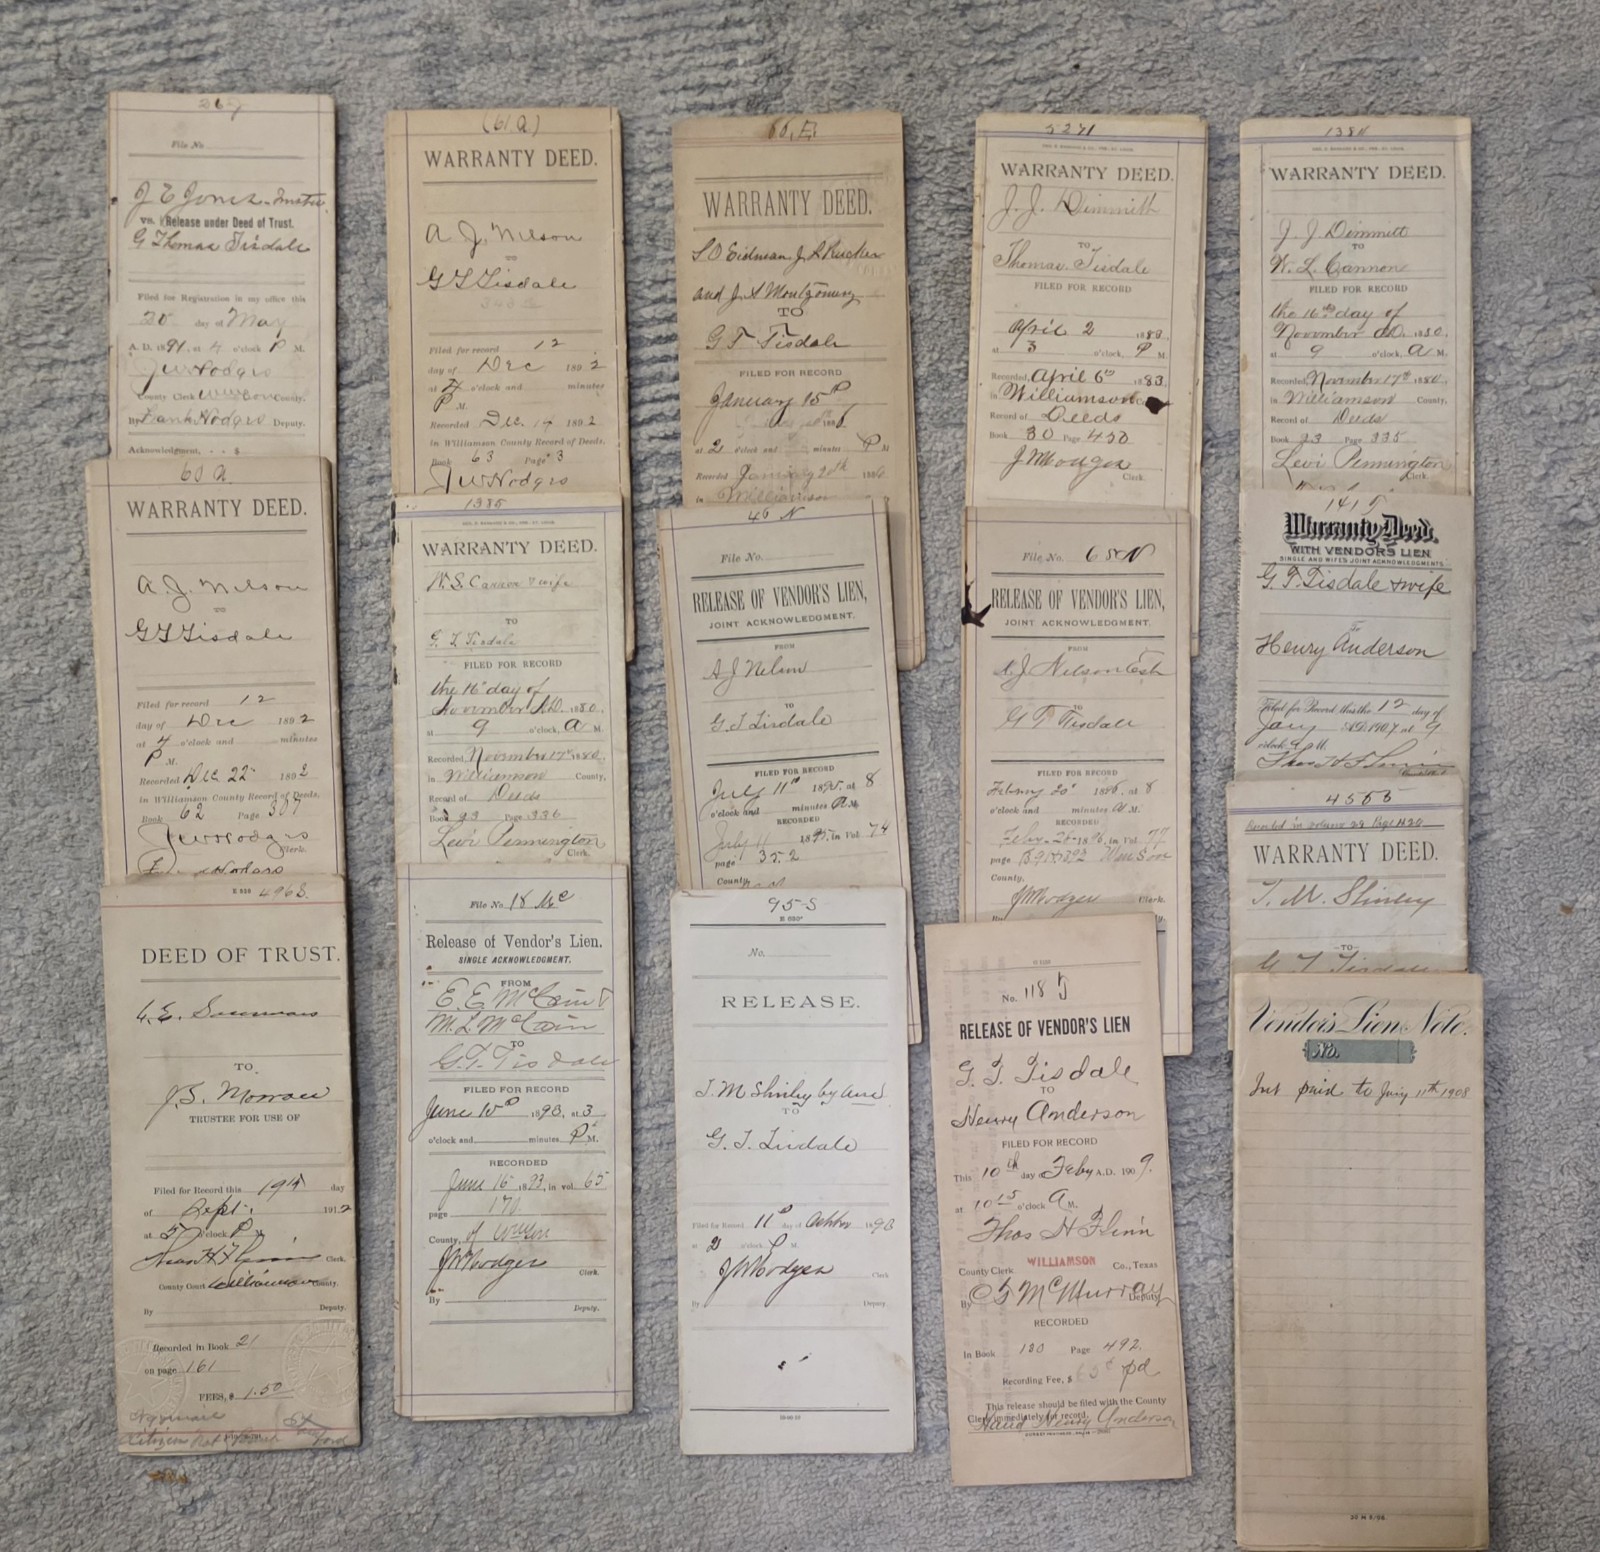 267
File No.
J E Jones, Trustee
vs. Release under Deed of Trust.
G Thomas Tisdale
Filed for Registration in my office this
20 day of May
A. D. 1891, at 4 o'clock P M.
J W Hodges
County Clerk County.
By Frank Hodges Deputy.
Acknowledgment, - - $
60 a
WARRANTY DEED.
A. J. Nelson
TO
G T Tisdale
Filed for record 12
day of Dec 1892
at 4 o'clock and minutes
P M.
Recorded Dec 22 1892
in Williamson County Record of Deeds.
Book 62 Page 307
J W Hodges
Clerk.
E 328 4963
DEED OF TRUST.
TO
TRUSTEE FOR USE OF
Filed for Record this 19th day
of Sept. 1912
at 5 o'clock P M.
Thos H Flinn Clerk,
County Court Williamson County.
By Deputy.
Recorded in Book 21
on page 161
FEES, $ 1.50
(61 a)
WARRANTY DEED.
A J. Nelson
TO
G T Tisdale
Filed for record 12
day of Dec 1892
at 4 o'clock and minutes
P M.
Recorded Dec. 14 1892
in Williamson County Record of Deeds.
Book 63 Page 3
J W Hodges
1385
WARRANTY DEED.
W. L. Cannon & wife
TO
G. T. Tisdale
FILED FOR RECORD
the 16th day of
November A.D. 1880.
at 9 o'clock, A M.
Recorded, November 17th 1880
in Williamson County,
Record of Deeds
Book 23 Page 336
Levi Pennington
Clerk.
File No. 18 Mc
Release of Vendor's Lien.
SINGLE ACKNOWLEDGMENT.
FROM
E. E. McCain &
M. L. McCain
TO
G. T. Tisdale
FILED FOR RECORD
June 10th 1893, at 3
o'clock and minutes P M.
RECORDED
June 16 1893, in vol. 65
page 170
County, of
J W Hodges
Clerk.
By
Deputy.
66, E
WARRANTY DEED.
S O Eidman J L Rucker
and J. S Montgomery
TO
G T Tisdale
FILED FOR RECORD
January 15th
at 2 o'clock and minutes P M
Recorded January 20th 1886
in Williamson
46 N
File No.
RELEASE OF VENDOR'S LIEN,
JOINT ACKNOWLEDGMENT.
FROM
A J Nelson
TO
G. T. Tisdale
FILED FOR RECORD
July 11th 1895. at 8
o'clock and minutes A M.
RECORDED
July 11 1895, in Vol. 74
page 352
County,
95-S
No.
RELEASE.
T. M Shinley by
TO
G. T. Tisdale
Filed for Record 11th day of October 1893
at 2 o'clock P M.
J W Hodges Clerk
By Deputy.
5271
WARRANTY DEED.
J. J. Dimmitt
TO
Thomas Tisdale
FILED FOR RECORD
April 2 1883.
at 3 o'clock, P M.
Recorded, April 6th 1883.
in Williamson Co
Record of Deeds
Book 30 Page 450
Clerk.
File No. 68 N
RELEASE OF VENDOR'S LIEN,
JOINT ACKNOWLEDGMENT.
FROM
A. J. Nelson Est
TO
G T Tisdale
FILED FOR RECORD
1896. at 8
o'clock and minutes A M.
RECORDED
Feby. 26 1896, in Vol. 77
page
County,
J W Hodges Clerk.
No. 118 5
RELEASE OF VENDOR'S LIEN
G. T. Tisdale
TO
Henry Anderson
FILED FOR RECORD
This 10th day Feby A.D. 1909.
at 10 15 o'clock A M.
Thos H Flinn
County Clerk WILLIAMSON Co., Texas
By McMurray Deputy
RECORDED
In Book 130 Page 492.
Recording Fee, $ pd
This release should be filed with the County
Clerk immediately for record.
Hand Henry Anderson
1384
WARRANTY DEED.
J. J Dimmitt
TO
W. L. Cannon
FILED FOR RECORD
the 16th day of
November A.D. 1880.
at 9 o'clock, A M.
Recorded, November 17th 1880.
in Williamson County,
Record of Deeds
Book 23 Page 335
Levi Pennington
Clerk.
141 5
Warranty Deed.
WITH VENDOR'S LIEN
SINGLE AND WIFE'S JOINT ACKNOWLEDGMENTS
G. T. Tisdale & wife
To
Henry Anderson
Filed for Record this the 12 day of
Jany A.D. 1907, at 9
o'clock a M.
Thos H Flinn
4555
Recorded in volume 28 Page 420
WARRANTY DEED.
T. M. Shinley
-TO-
G T Tisdale
Vendor's Lien Note.
No.
Int paid to Jany 11th 1908